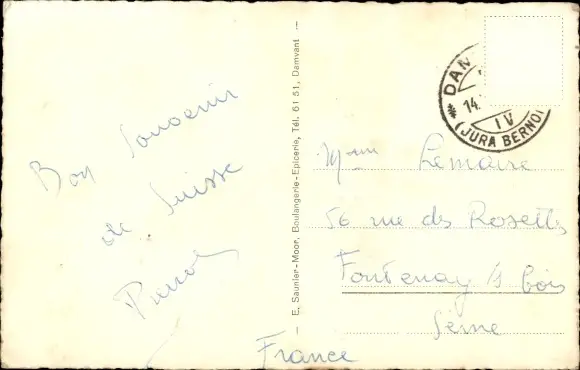 Bon Souvenir
de Suisse
Pierre
— E. Saunier-Moor, Boulangerie-Epicerie, Tél. 61 51, Damvant —
DAM
14.
IV
(JURA BERNO
Mme Lemaire
56 rue des Rosettes
Fontenay s/s bois
Seine
France